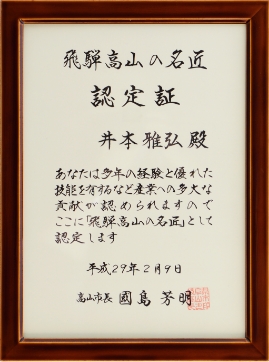 飛騨高山の名匠
認定証
井本雅弘 殿
あなたは多年の経験と優れた
技能を有するなど産業への多大な
貢献が認められますので
ここに「飛騨高山の名匠」として
認定します
平成29年2月9日
高山市長 國島 芳明